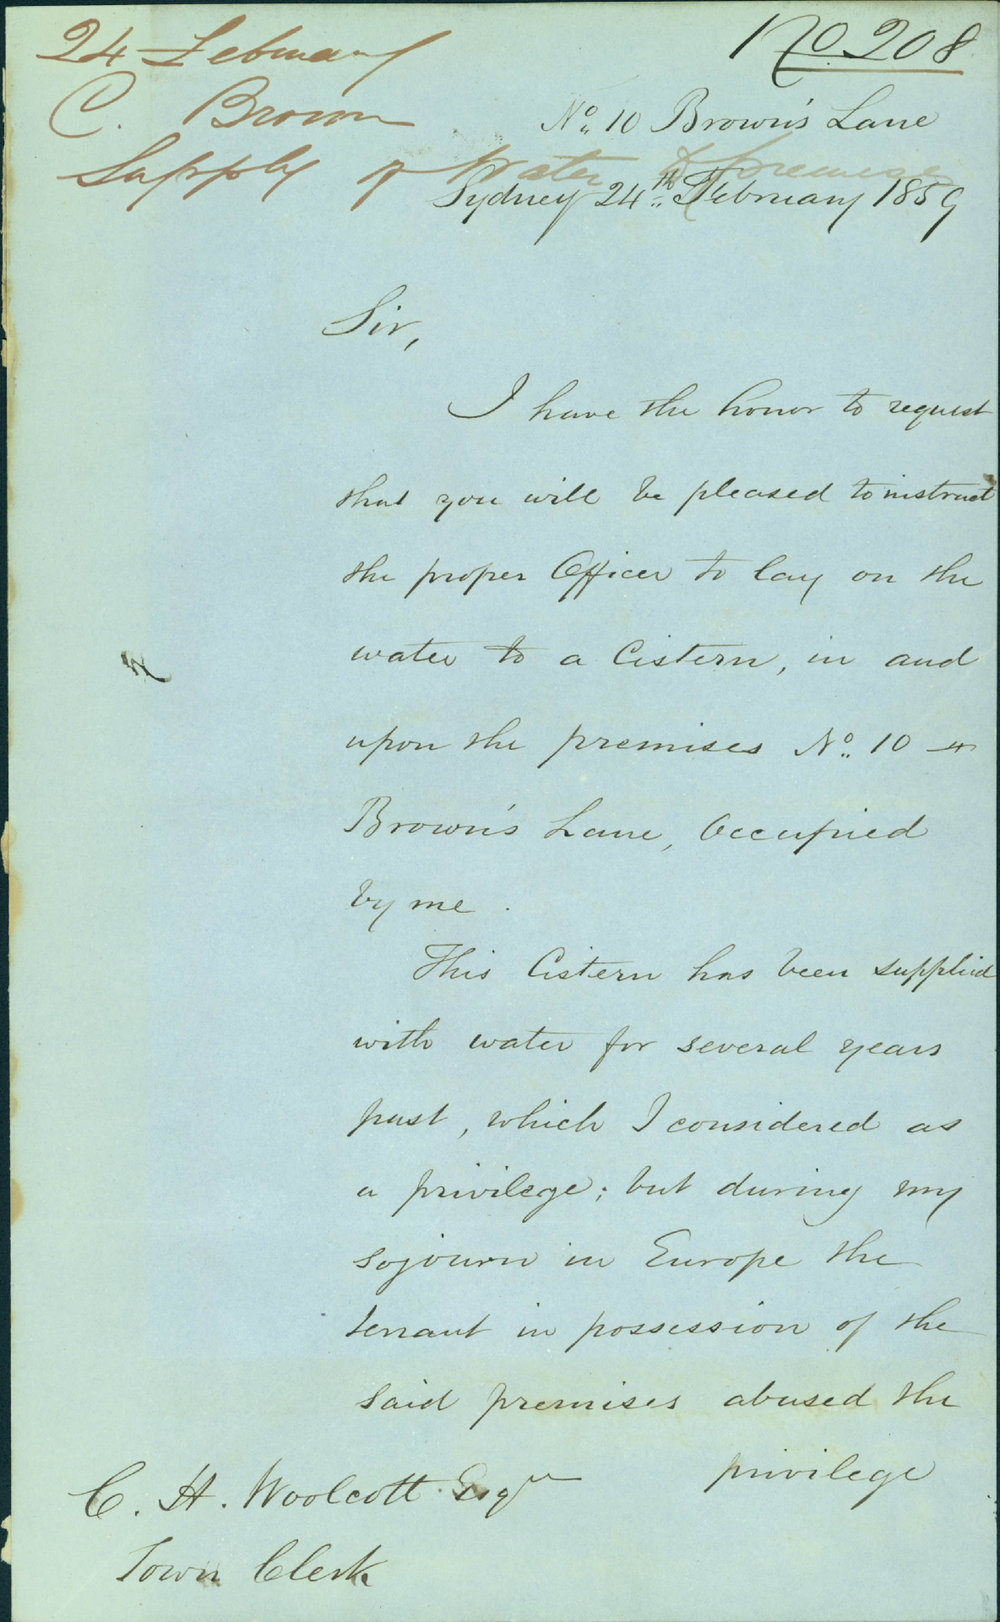 24 February
No 208
C. Brown
Supply of Water to premises
No. 10 Brown's Lane
Sydney 24th February 1859
Sir,
I have the honor to request
that you will be pleased to instruct
the proper Officer to lay on the
water to a Cistern, in and
upon the premises No. 10
Brown's Lane, Occupied
by me.
This Cistern has been supplied
with water for several years
past, which I considered as
a privilege; but during my
sojourn in Europe the
tenant in possession of the
said premises abused the
privilege
C. H. Woolcott Esqr
Town Clerk